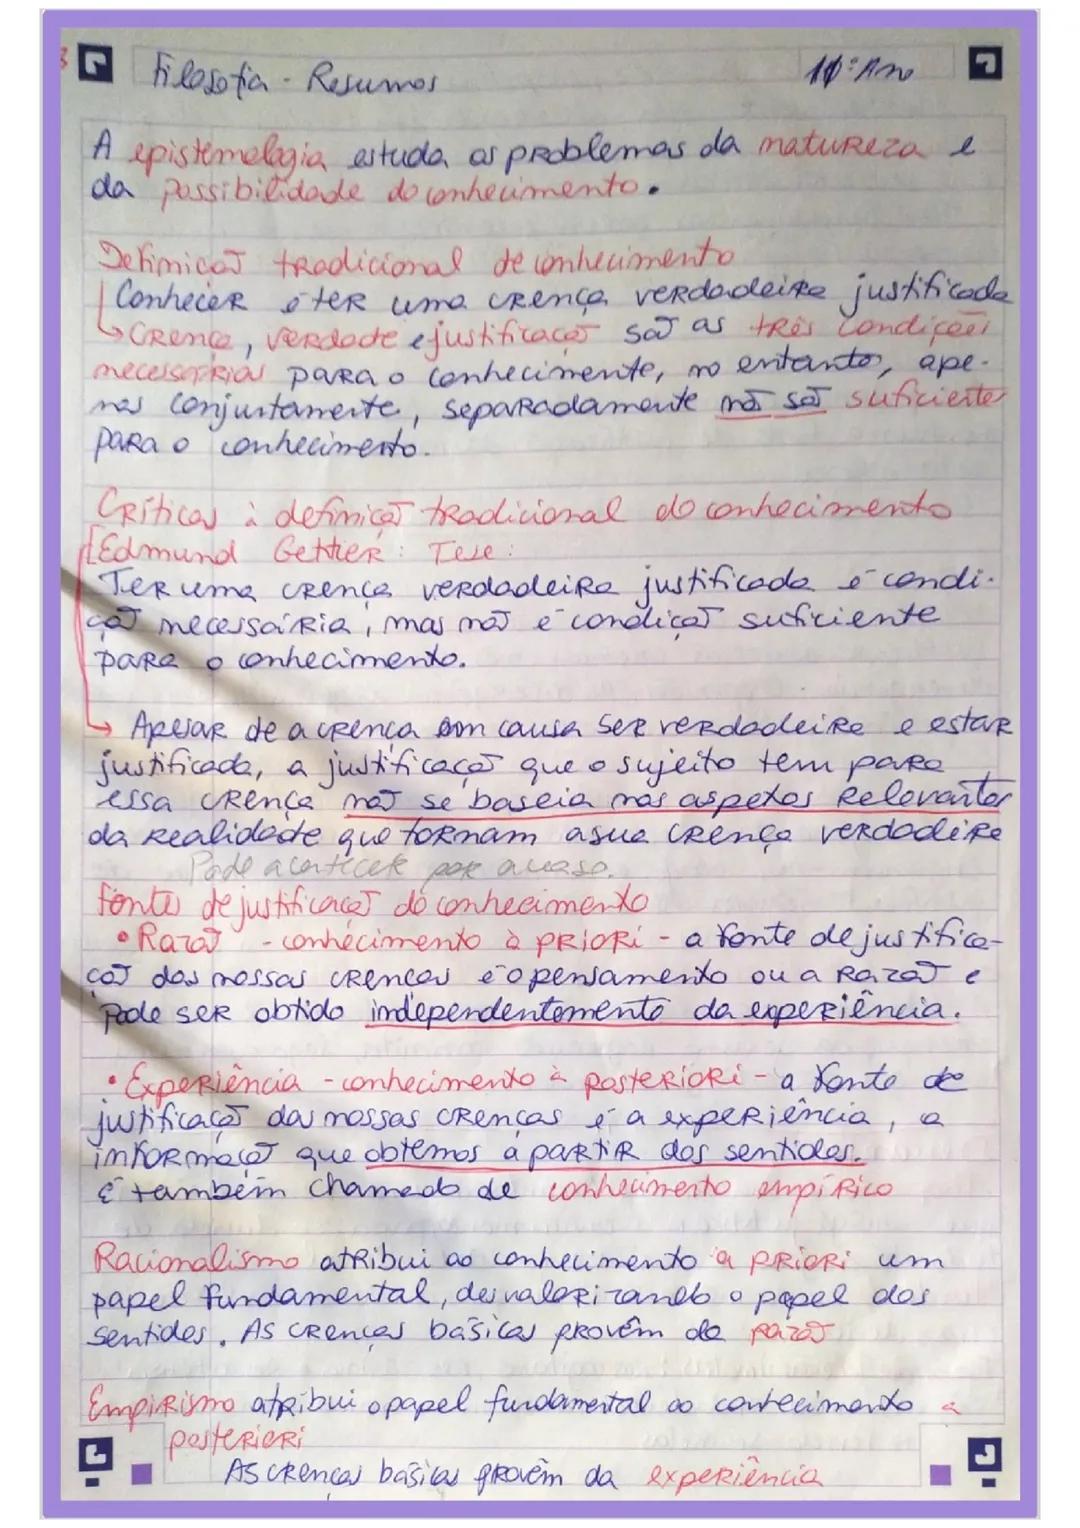 Filosofia - Resumos
10º Ano
A epistemologia estuda os problemas da natureza e
da possibilidade do conhecimento.
Definição tradicional de conhecimento
Conhecer é ter uma crença verdadeira justificada
Crença, verdade e justificação são as três condições
necessárias para o conhecimento, no entanto, ape-
nas conjuntamente, separadamente não são suficientes
para o conhecimento.
Críticas à definição tradicional do conhecimento
Edmund Gettier: Tese:
Ter uma crença verdadeira justificada é condi-
ção necessária, mas não é condição suficiente
para o conhecimento.
Apesar de a crença em causa ser verdadeira e estar
justificada, a justificação que o sujeito tem para
essa crença não se baseia nos aspetos relevantes
da realidade que tornam a sua crença verdadeira
Pode acontecer por acaso.
Fontes de justificação do conhecimento
• Razão - conhecimento à priori - a fonte de justifica-
ção das nossas crenças é o pensamento ou a razão e
pode ser obtido independentemente da experiência.
• Experiência - conhecimento à posteriori - a fonte de
justificação das nossas crenças é a experiência, a
informação que obtemos a partir dos sentidos.
É também chamado de conhecimento empírico
Racionalismo atribui ao conhecimento a priori um
papel fundamental, desvalorizando o papel dos
sentidos. As crenças básicas provêm da razão
Empirismo atribui o papel fundamental ao conhecimento a
posteriori
As crenças básicas provêm da experiência